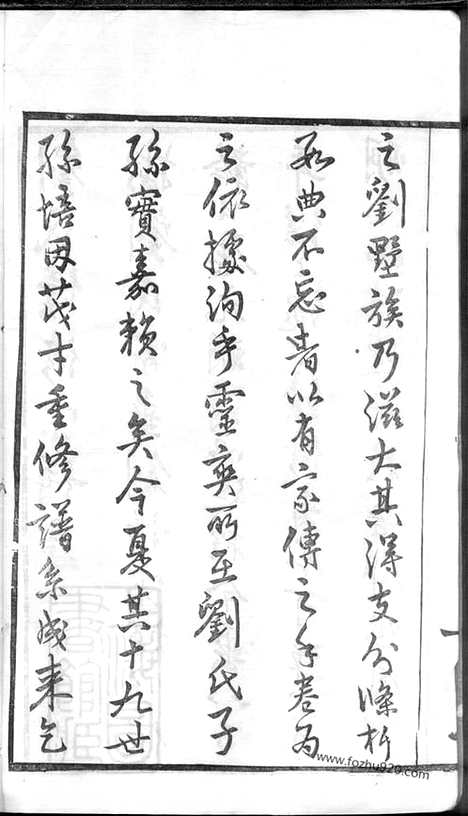 之劉墅族乃滋大其得支分條析
數典不忘者以有家傳之手卷為
之依據洵乎靈爽所至劉氏子
孫實嘉賴之矣今夏其十九世
孫培因茂才重修譜系成來乞
www.fozhu920.com